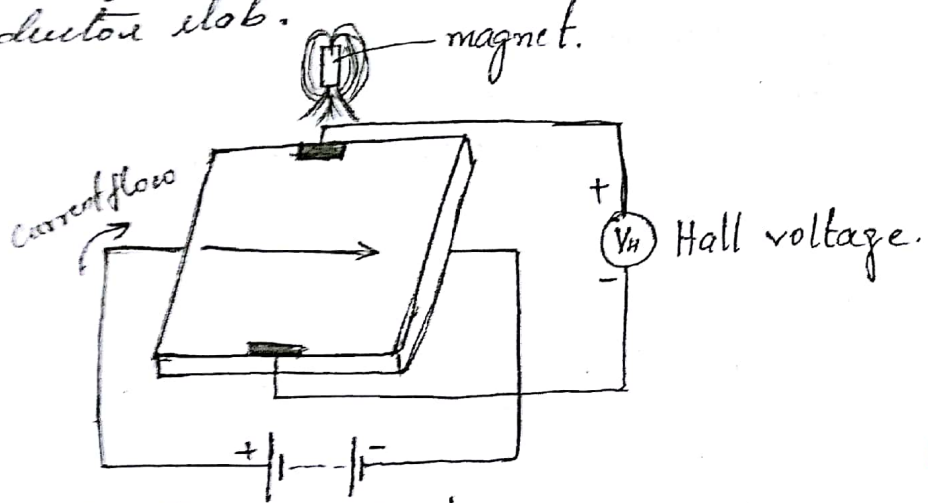 slab.
magnet.
Current flow
+
V_H Hall voltage.
-
+ -